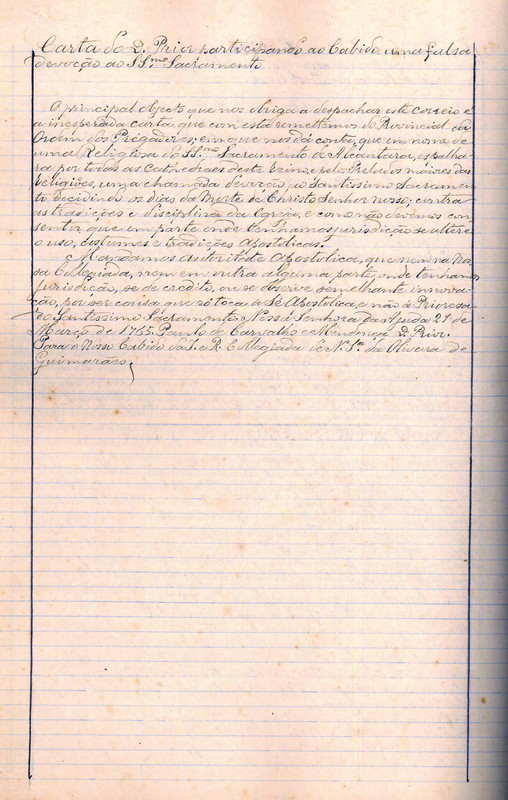 Carta do D. Prior participando ao Cabido uma falsa
devoção ao SS.mo Sacramento
O principal objecto que nos obriga a despachar este correio é
a inesperada carta que com esta remettemos do Provincial da
Ordem dos Prégadores, em que nos dá conta, que em nome de
uma Religiosa do SS.mo Sacramento de Alcantara, espalha-
ra por todas as Cathedraes deste Reino, e pelos Prelados maiores das
religiões, uma chamada devoção ao Santissimo Sacramen-
to decidindo os dias da Morte de Christo Senhor nosso, contra
as tradições e disciplina da Egreja, e como não devemos con-
sentir que em parte onde tenhamos jurisdicção se altere
o uso, costumes e tradições Apostolicas.
Mandamos Autoritate Apostolica, que nem na Nos-
sa Collegiada, nem em outra alguma parte, onde tenhamos
jurisdicção, se dê credito, ou se observe semelhante innova-
ção, por ser coisa que só toca á Sé Apostolica, e não á Prioresa
do Santissimo Sacramento. Nossa Senhora da Ajuda 21 de
Março de 1765. Paulo de Carvalho e Mendonça D. Prior.
Para o Nosso Cabido da I. e R. Collegiada de N. S.ra da Oliveira de
Guimarães